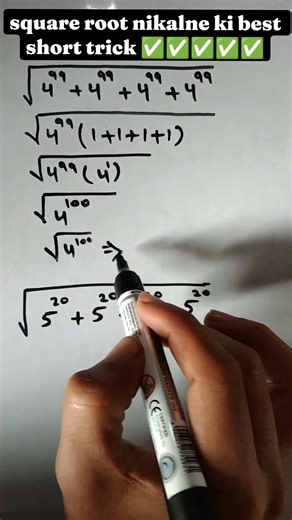 square root nikalne ki best
short trick ✅✅✅✅✅
√(4⁹⁹ + 4⁹⁹ + 4⁹⁹ + 4⁹⁹)
√(4⁹⁹(1+1+1+1))
√(4⁹⁹(4¹))
√(4¹⁰⁰)
√(4¹⁰⁰) ⇒
√(5²⁰ + 5²⁰ 5²⁰)
CE